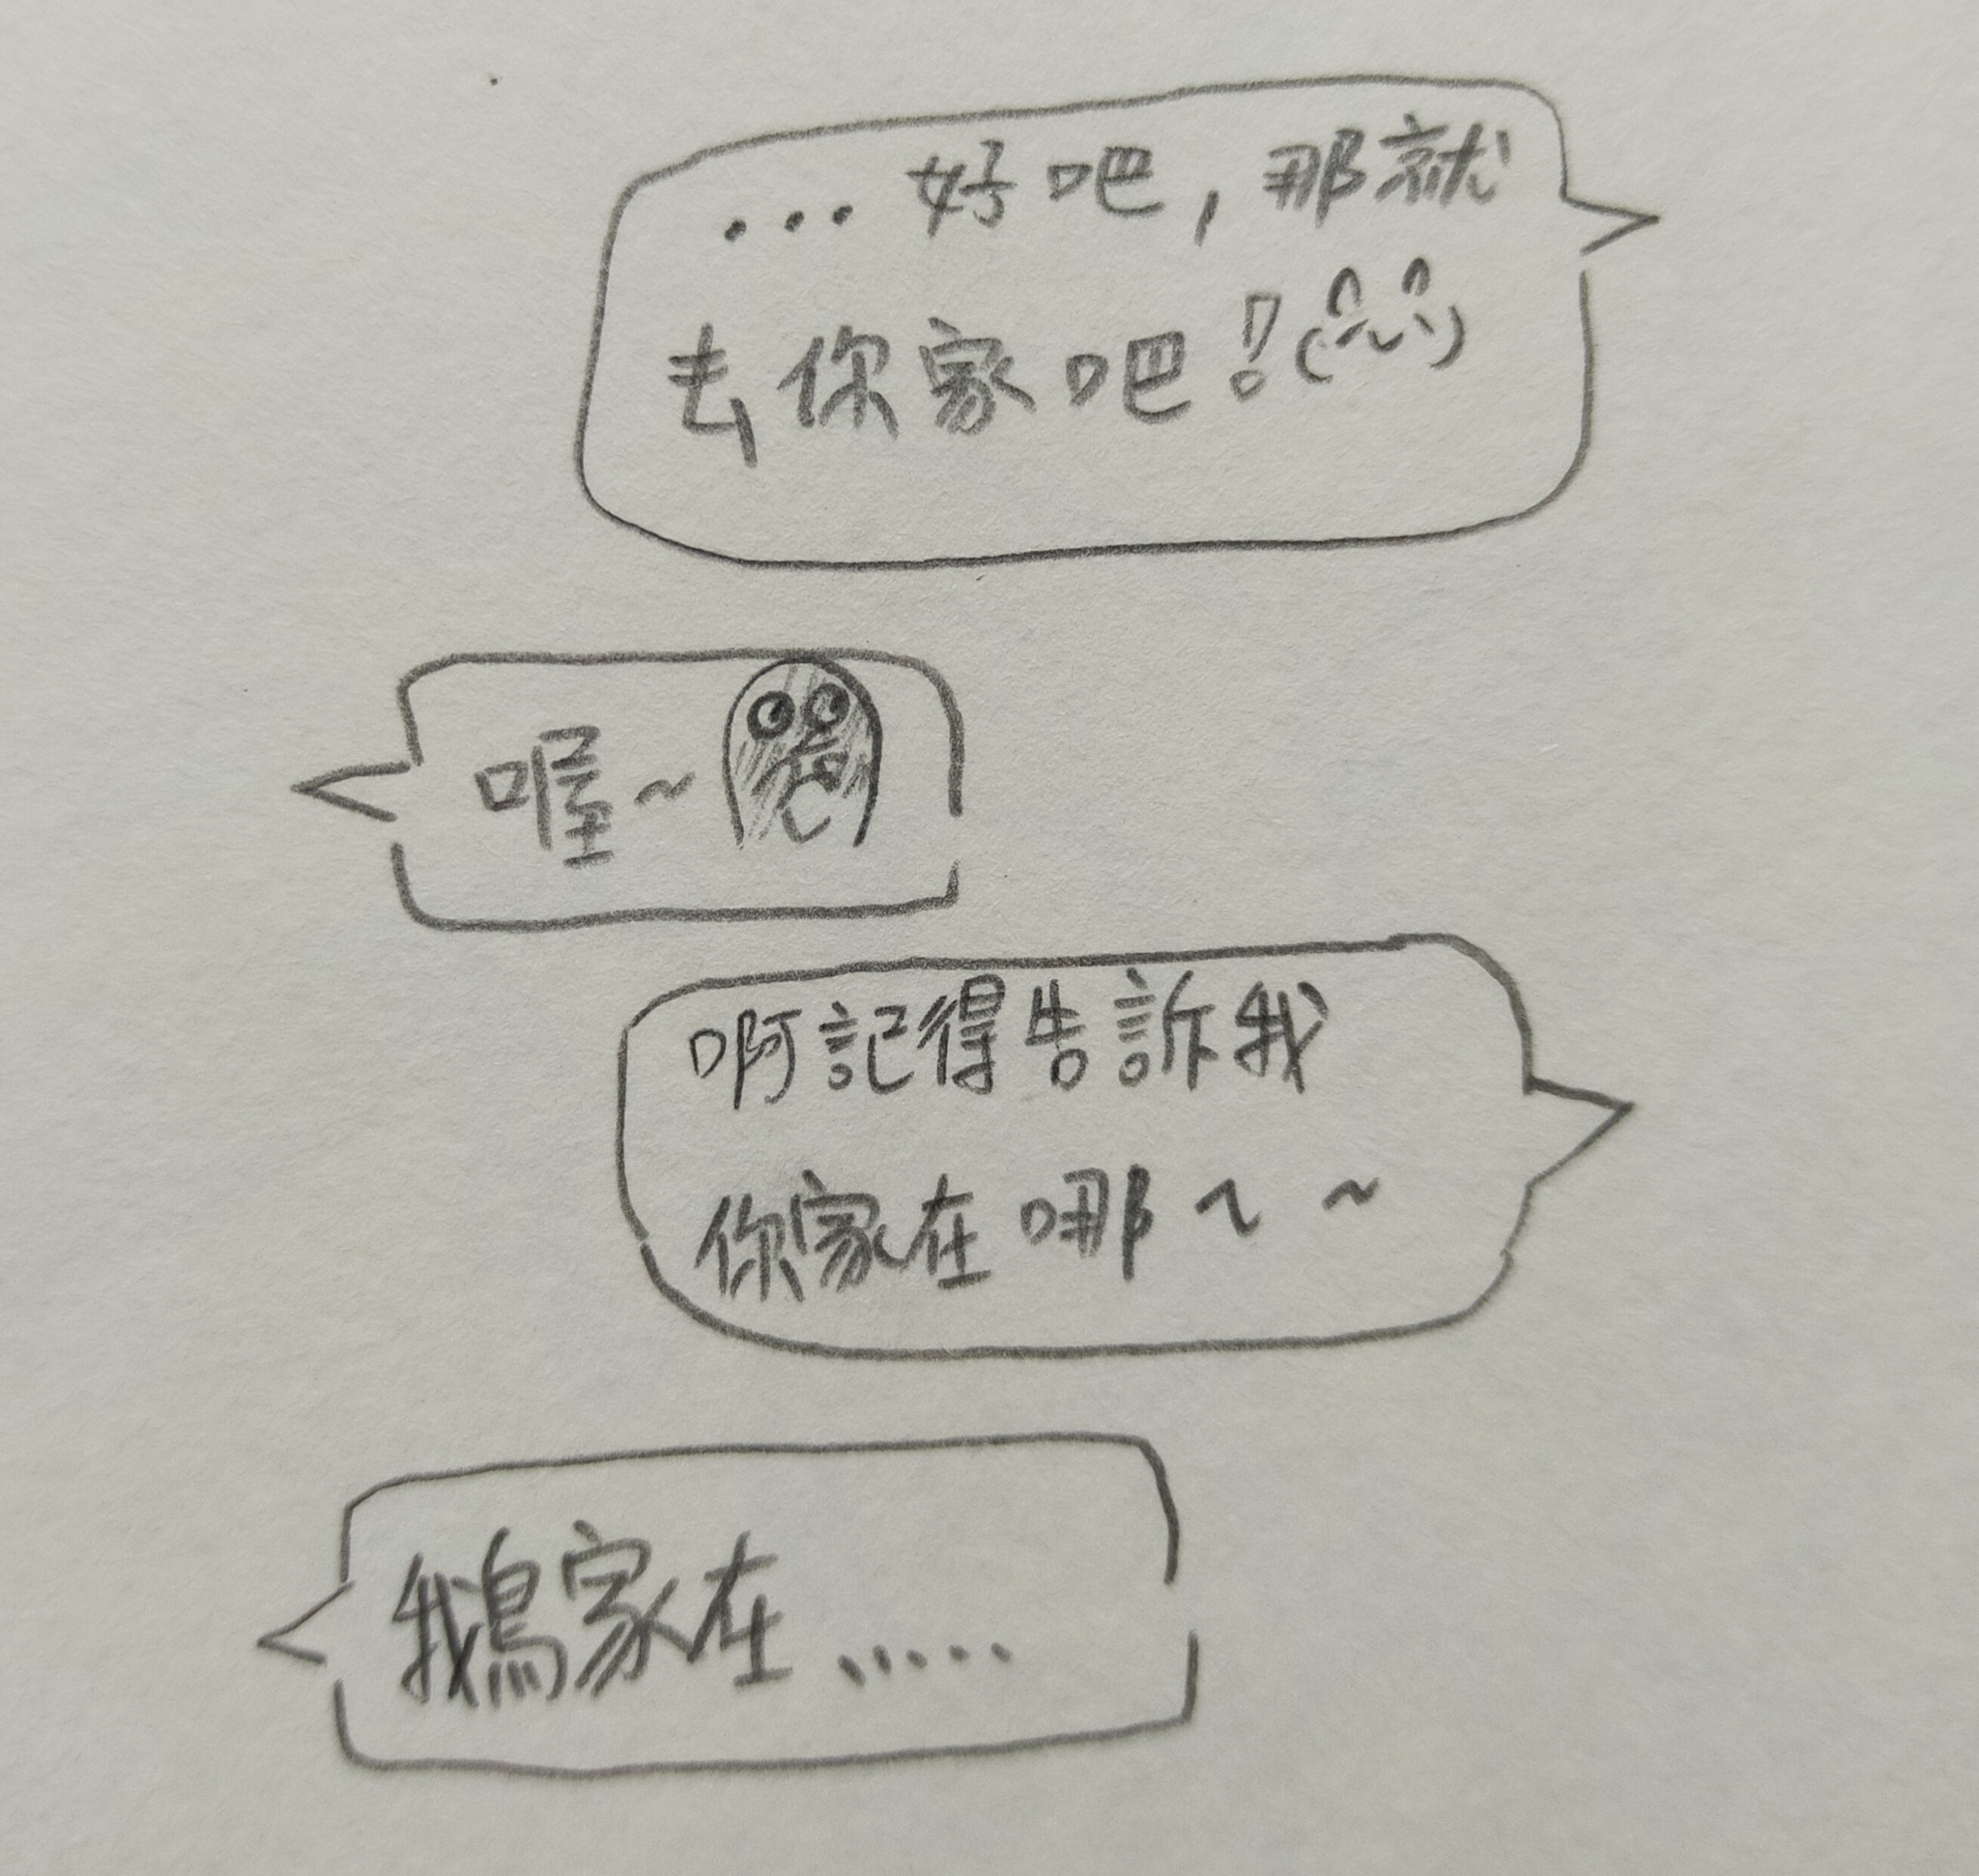 ...好吧，那就
去你家吧!(^~^)
喔~
啊記得告訴我
你家在哪~~
鵝家在.....